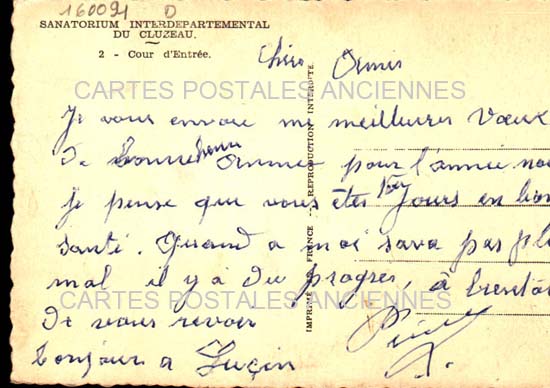 160091 D
SANATORIUM INTERDEPARTEMENTAL
DU CLUZEAU.
2 - Cour d'Entrée.
chers Ormis
CARTES POSTALES ANCIENNES
Je vous envoie me meilleures Vœux
de bonne année pour l'année nou
je pense que vous êtes toujours en bon
santé. Quand a moi sava pas pl
mal il y a du progrès, à bientôt
CARTES POSTALES ANCIENNES
de vous revoir
bonjour a
IMPRIMÉ EN FRANCE - REPRODUCTION INTERDITE